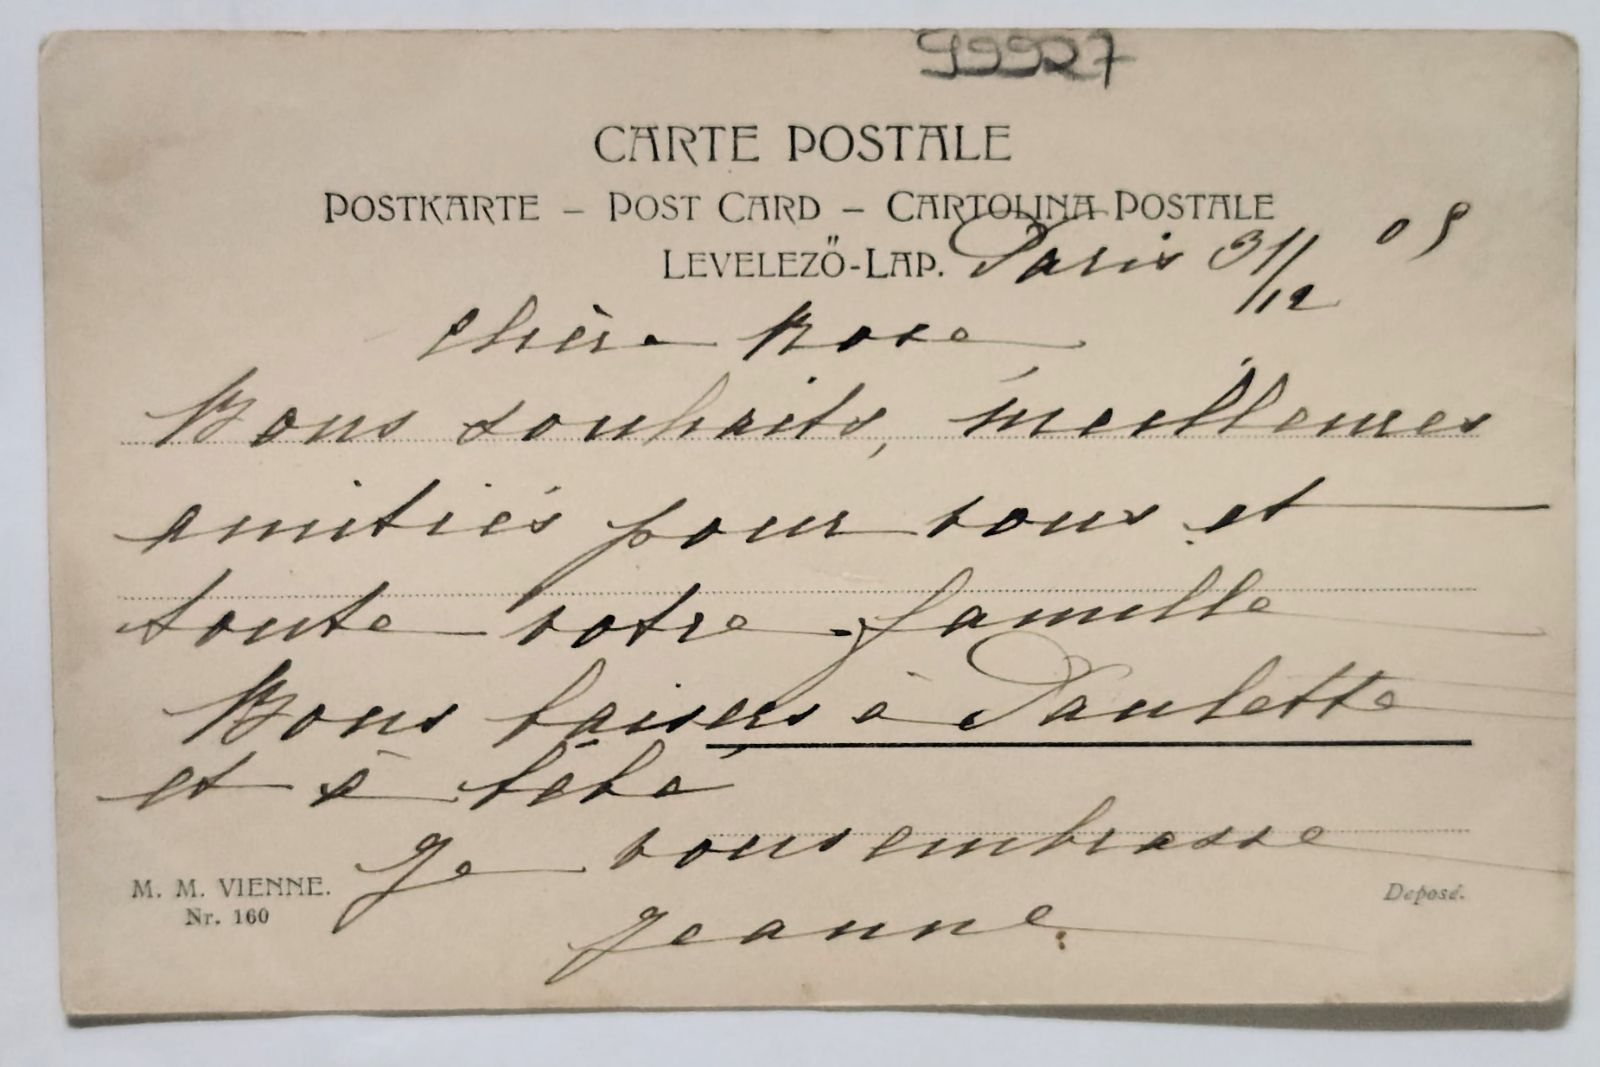 99927
CARTE POSTALE
POSTKARTE – POST CARD – CARTOLINA POSTALE
LEVELEZŐ-LAP.
Paris 31/12 05
Chère Rose
Bons souhaits, meilleures
amitiés pour vous et
toute votre famille
Bons baisers à Paulette
et à bébé
Je vous embrasse
Jeanne
M. M. VIENNE.
Nr. 160
Deposé.